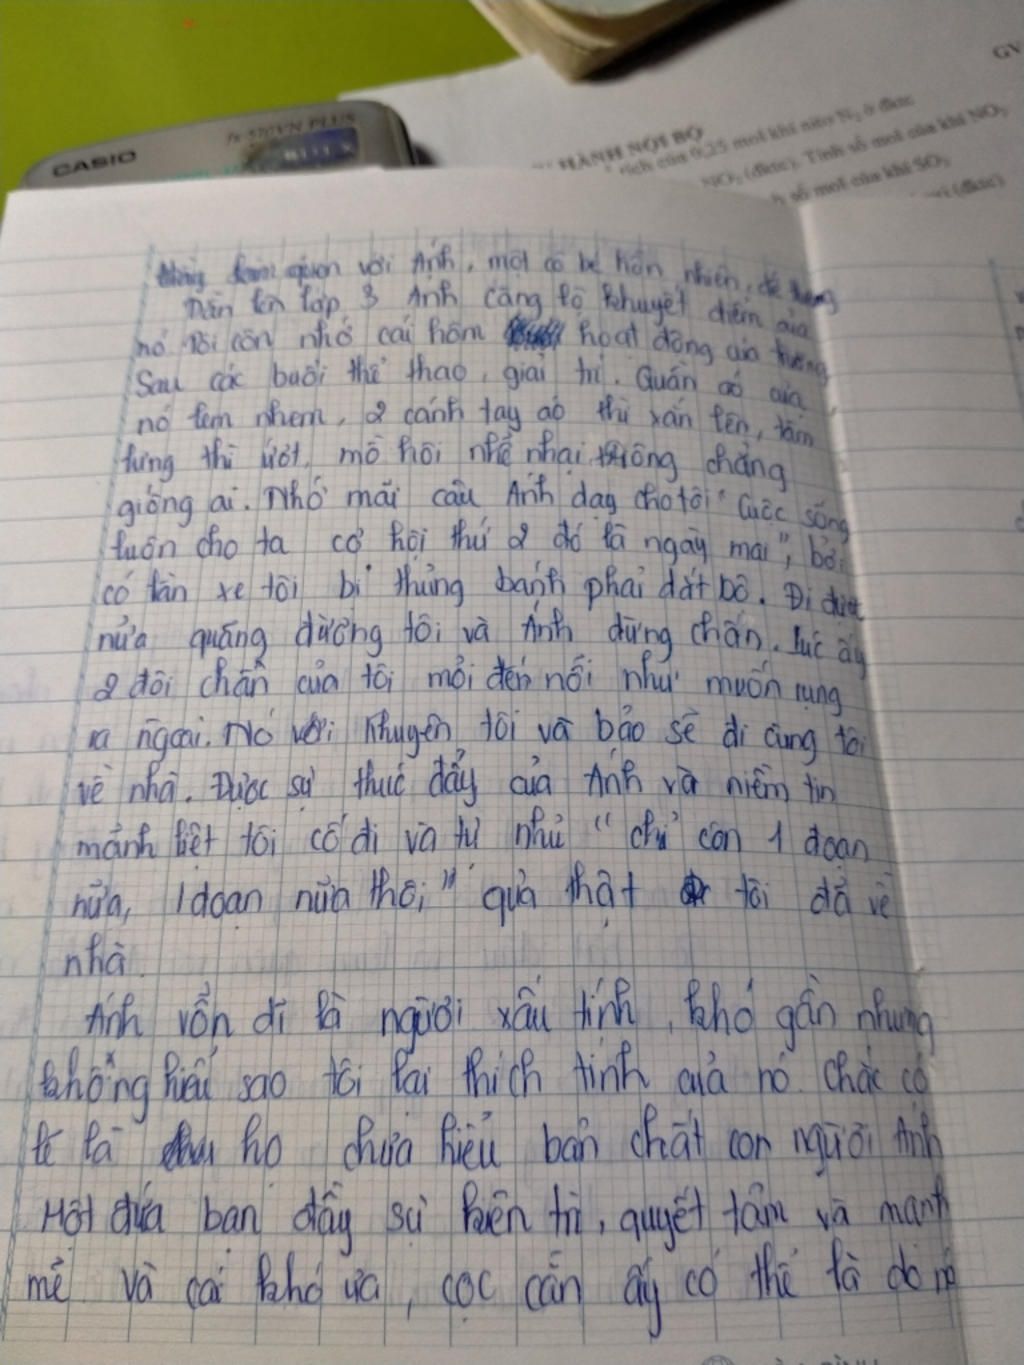 CASIO
fx-570VN PLUS
GV
HÀNH NỘI BỘ
tích của 0,25 mol khí nitơ N₂ ở đktc
NO₂ (đktc). Tính số mol của khí NO₂
số mol của khí SO₂
(đktc)
quen với Ánh, một cô bé hồn nhiên, dễ
Dần lên lớp 3 Ánh càng lộ khuyết điểm của
nó. Tôi còn nhớ cái hôm hoạt động của trường
Sau các buổi thể thao, giải trí. Quần áo của
nó lem nhem, 2 cánh tay áo thì xắn lên, tấm
lưng thì ướt, mồ hôi nhễ nhại trông chẳng
giống ai. Nhớ mãi câu Ánh dạy cho tôi "Cuộc sống
luôn cho ta cơ hội thứ 2 đó là ngày mai", bởi
có lần xe tôi bị thủng bánh phải dắt bộ. Đi được
nửa quãng đường tôi và Ánh dừng chân. Lúc ấy
2 đôi chân của tôi mỏi đến nỗi như muốn rụng
ra ngoài. Nó với khuyên tôi và bảo sẽ đi cùng tôi
về nhà. Được sự thúc đẩy của Ánh và niềm tin
mảnh liệt tôi cố đi và tự nhủ "chỉ còn 1 đoạn
nữa, 1 đoạn nữa thôi" quả thật tôi đã về
nhà.
Ánh vốn dĩ là người xấu tính, khó gần nhưng
không hiểu sao tôi lại thích tính của nó. Chắc có
lẽ là họ chưa hiểu bản chất con người Ánh
Một đứa bạn đầy sự kiên trì, quyết tâm và mạnh
mẽ và cái khó ưa, cọc cằn ấy có thể là do nó